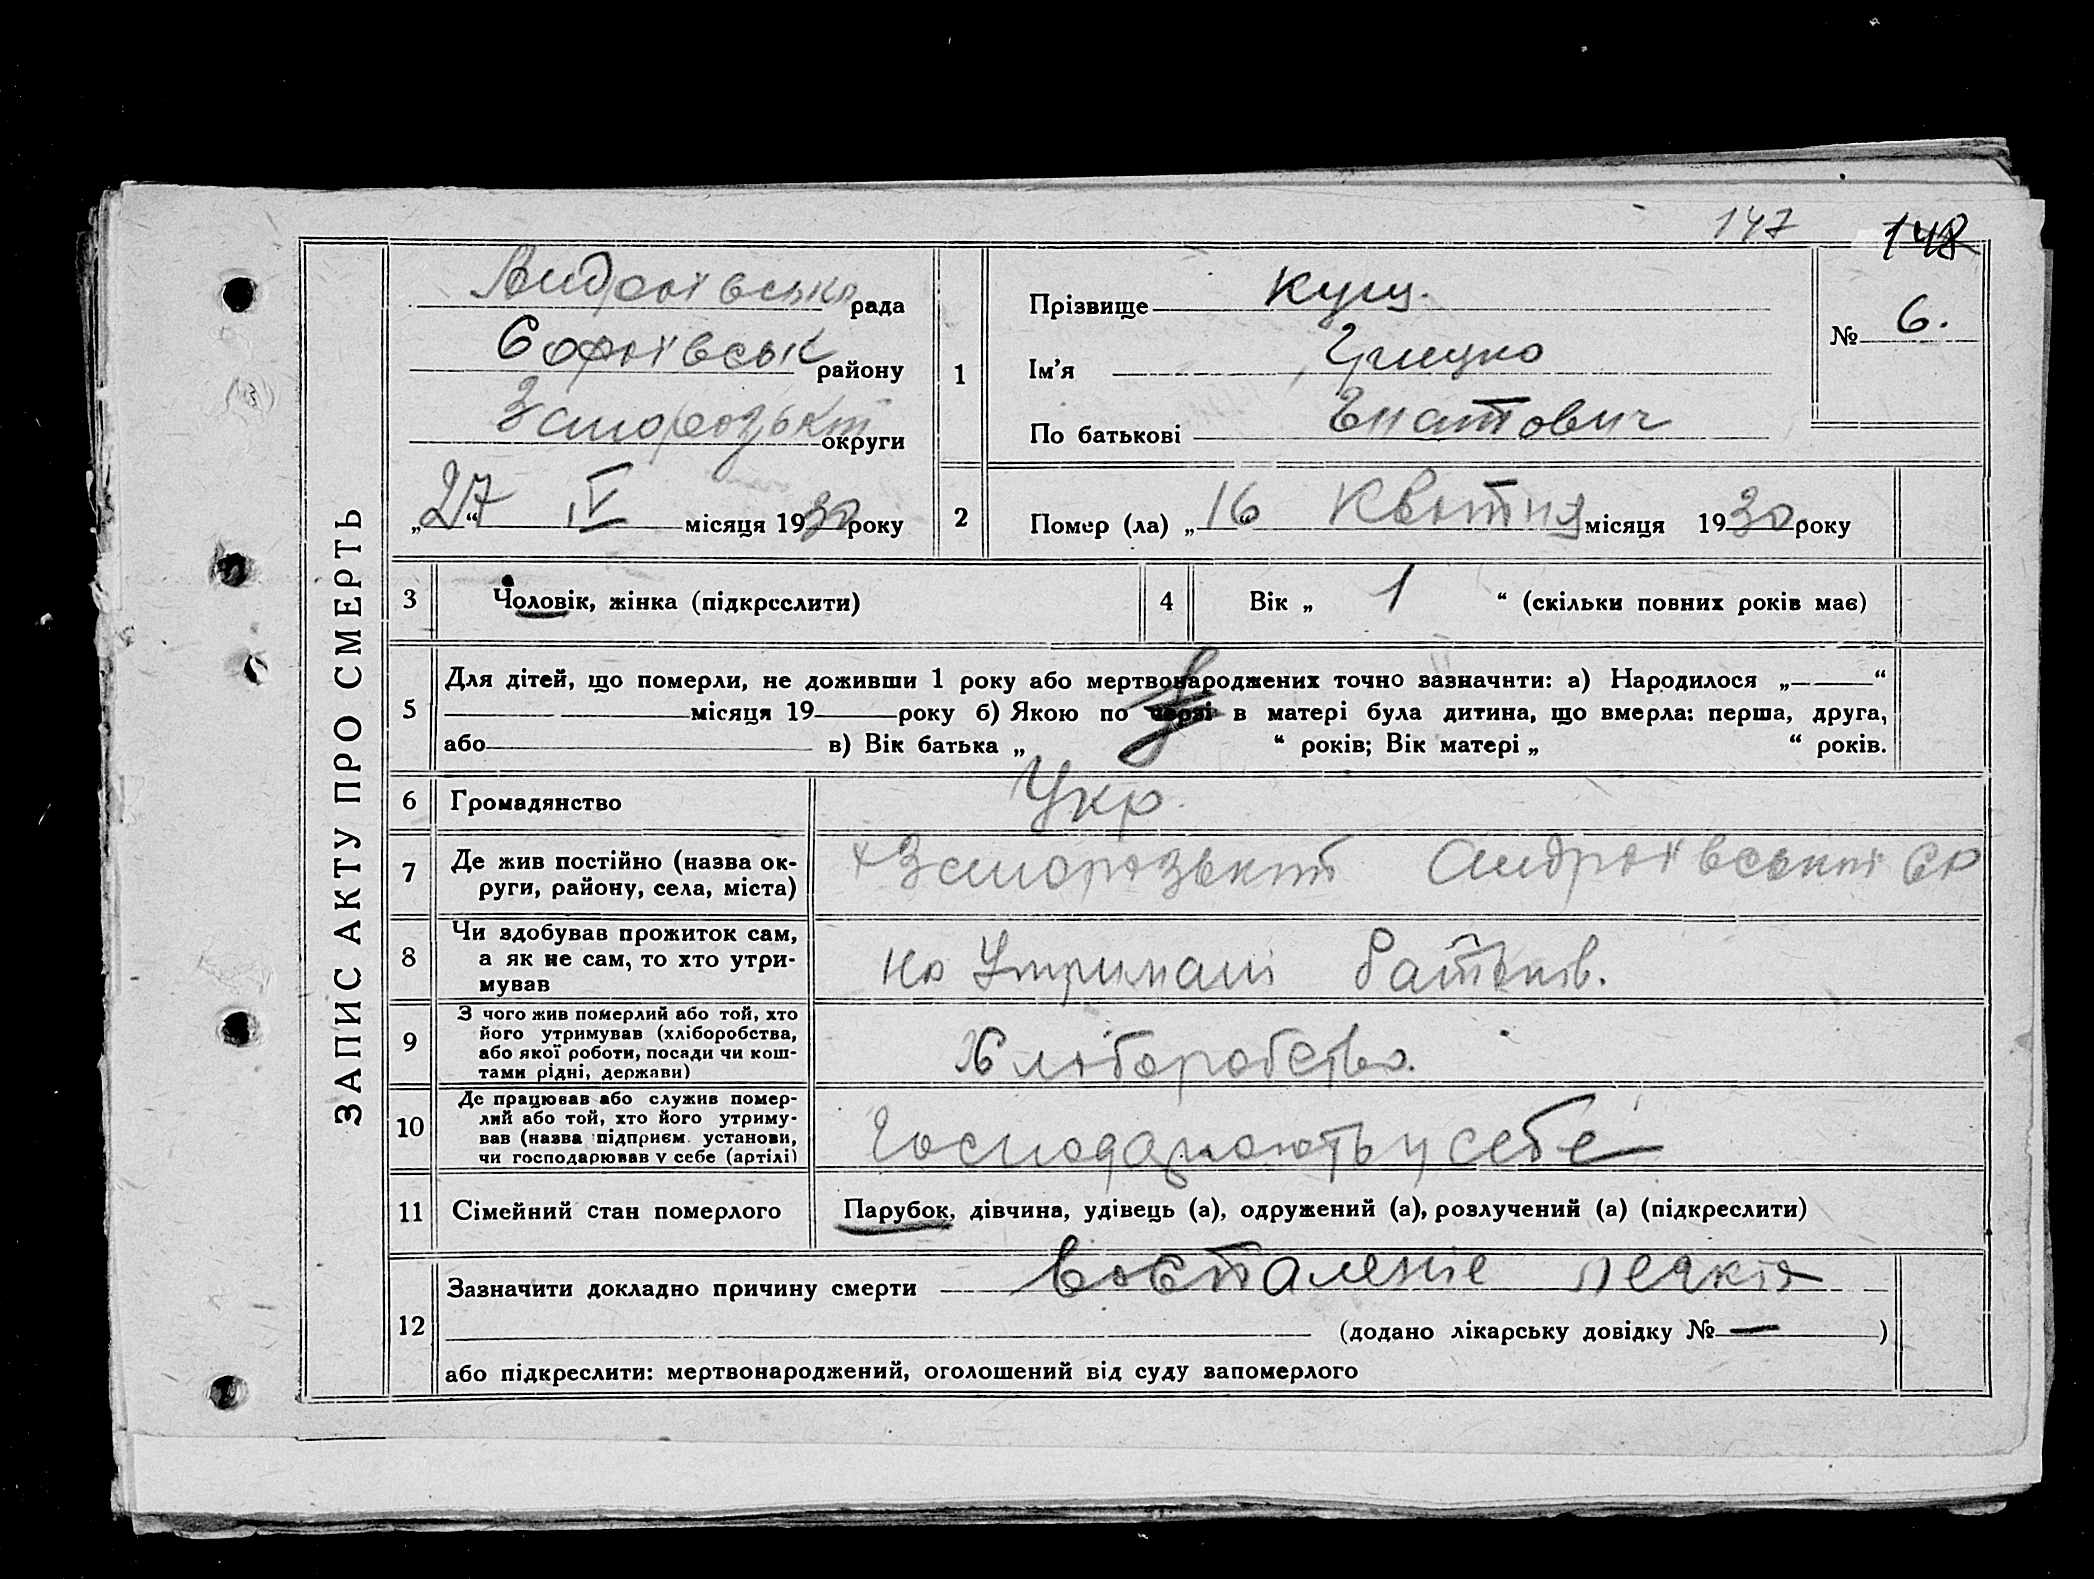 147 148
ЗАПИС АКТУ ПРО СМЕРТЬ
Андріївська рада
Софіївськ району
Запорізької округи
„27“ IV місяця 1930 року
1
Прізвище Кущ.
Ім’я Грицко
По батькові Гнатович
№ 6.
2
Помер (ла) „16 Квітня місяця 1930 року
3 Чоловік, жінка (підкреслити)
4 Вік „ 1 “ (скільки повних років має)
5
Для дітей, що померли, не доживши 1 року або мертвонароджених точно зазначити: а) Народилося „ “
місяця 19 року б) Якою по черзі в матері була дитина, що вмерла: перша, друга,
або в) Вік батька „ “ років; Вік матері „ “ років.
6 Громадянство Укр.
7 Де жив постійно (назва ок-
руги, району, села, міста)
Запорізької Андріївської
8 Чи здобував прожиток сам,
а як не сам, то хто утри-
мував
на Утримані батьків.
9 З чого жив померлий або той, хто
його утримував (хліборобства,
або якої роботи, посади чи кош-
тами рідні, держави)
Хліборобство.
10 Де працював або служив помер-
лий або той, хто його утриму-
вав (назва підприєм. установи,
чи господарював у себе (артілі)
Господарюють у себе
11 Сімейний стан померлого Парубок, дівчина, удівець (а), одружений (а), розлучений (а) (підкреслити)
12
Зазначити докладно причину смерти воспаленіе легкіх
(додано лікарську довідку № — )
або підкреслити: мертвонароджений, оголошений від суду запомерлого